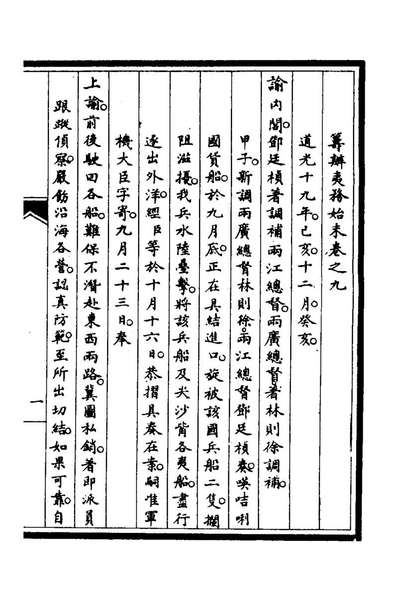 籌辦夷務始末卷之九
道光十九年己亥十二月癸亥。
諭內閣鄧廷楨著調補兩江總督。兩廣總督著林則徐調補。
甲子。新調兩廣總督林則徐。兩江總督鄧廷楨奏。㗎咭唎
國貨船。於九月底。正在具結進口。旋被該國兵船二隻。攔
阻滋擾。我兵水陸疊擊。將該兵船及尖沙觜各夷船。盡行
逐出外洋。經臣等於十月十六日。恭摺具奏在案。嗣准軍
機大臣字寄。九月二十三日。奉
上諭。前後駛回各船。難保不潛赴東西兩路。冀圖私銷。著即派員
跟蹤偵察。嚴飭沿海各營。認真防範。至所出切結。如果可靠。自
一